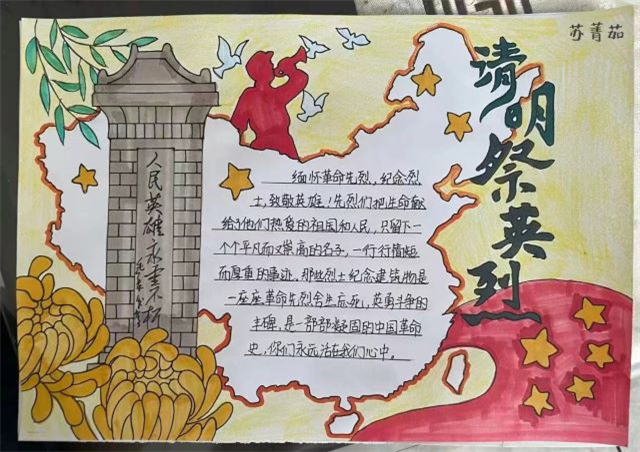 苏菁茄
清明祭英烈
人民英雄永垂不朽
缅怀革命先烈，纪念烈
士，致敬英雄！先烈们把生命献
给了他们热爱的祖国和人民，只留下一
个个平凡而又崇高的名子，一行行简短
而厚重的事迹，那些烈士纪念建筑物是
一座座革命先烈舍生忘死，英勇斗争的
丰碑，是一部部凝固的中国革命
史，你们永远活在我们心中。